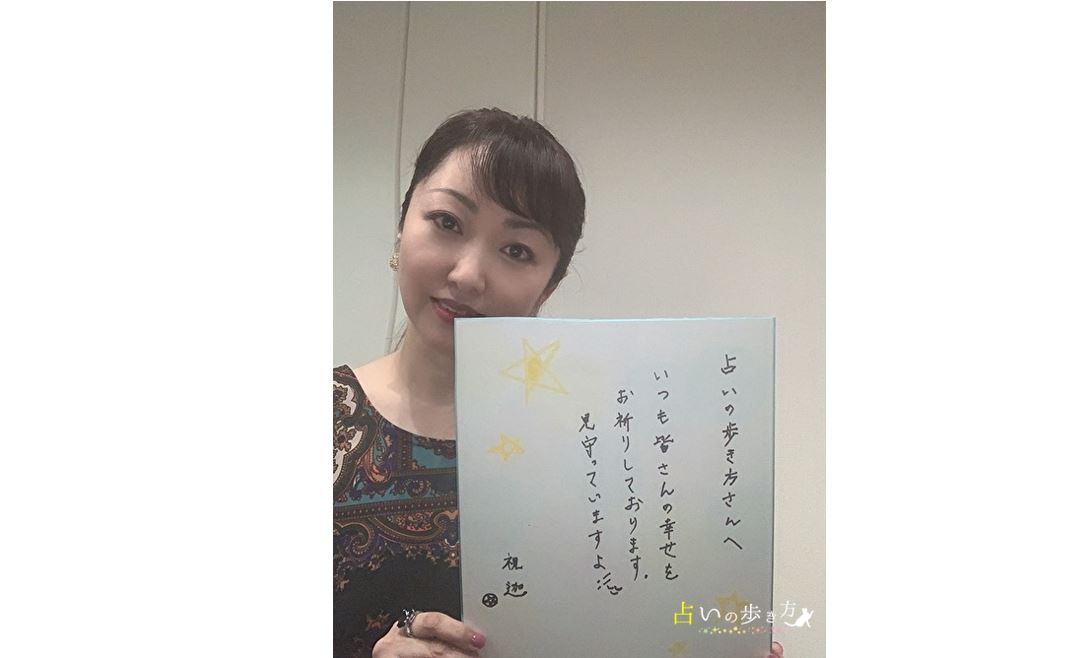 占いの歩き方さんへ
いつも皆さんの幸せを
お祈りしております。
見守っていますよ
祝迦
占いの歩き方